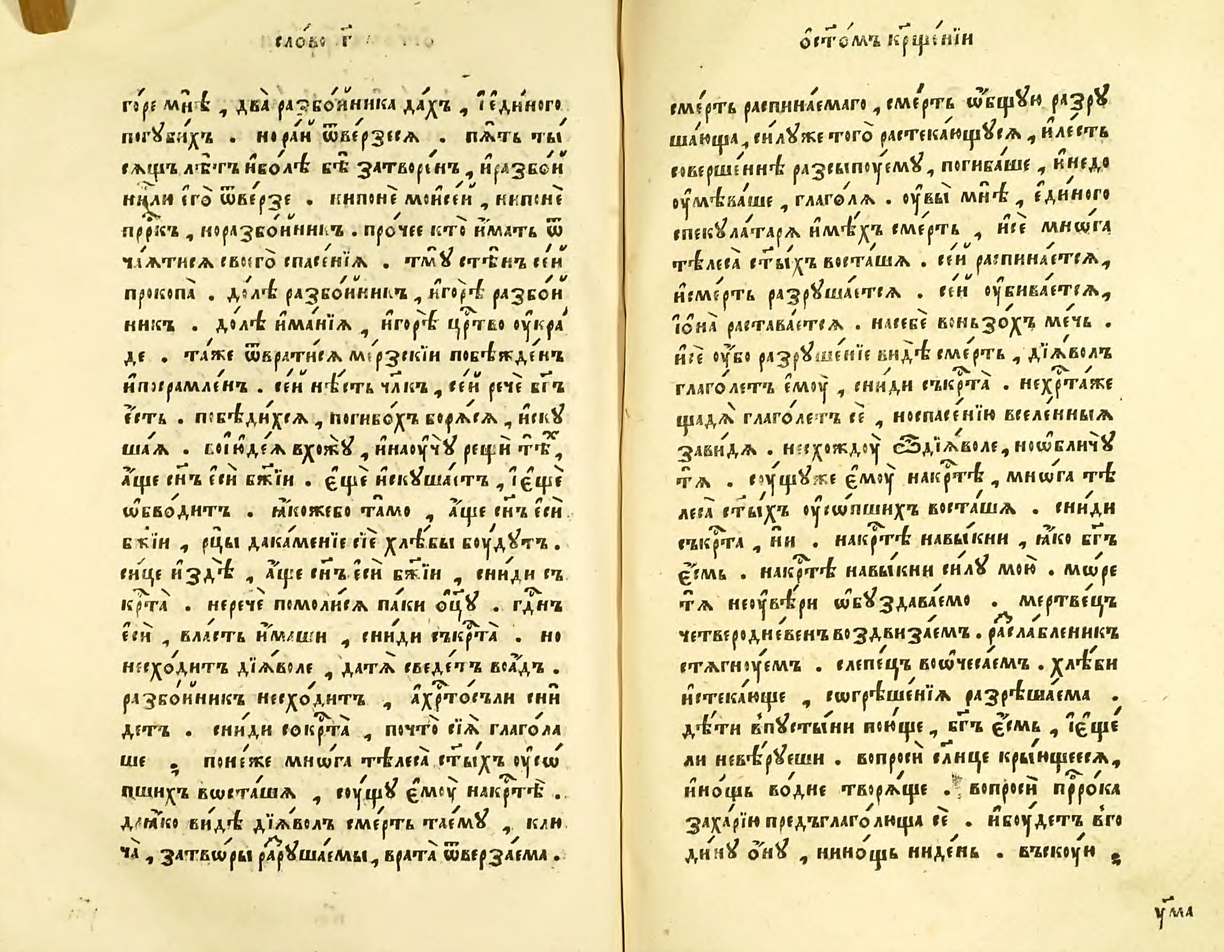 сло́во г҃
го́ре мнѣ̀ , два̀ разбо́йника да́хъ , і҆еди́ного
погꙋби́хъ . но ра́й ѿве́рзеся . пѧ́ть ты́
сѧщъ лѣ́тъ и҆бо́лѣ бѣ̀ затворе́нъ , и҆разбо́й
ни́цы его̀ ѿве́рзе . кипонѐ моисе́й , нипонѐ
прⷪ҇ркъ , норазбо́йникъ . про́чее кто̀ и҆́мать ѿ
ча́ятися своего̀ спасе́нїѧ . тмꙋ̀ стѣ́нъ се́й
прокопа̀ . до́лѣ разбо́йникъ , и҆горѣ̀ разбо́й
никъ . до́лѣ и҆мѣ́нїѧ , и҆горѣ̀ црⷭ҇тво оу҆кра́
де . та́же ѿврати́сѧ ме́рзскїи побѣжде́нъ
и҆посрамле́нъ . се́й нѣ́сть чл҃къ , се́й речѐ бг҃ъ
е҆́сть . побѣди́хсѧ , погибо́хъ борѧ́сѧ , и҆скꙋ
ша́ѧ . вої҆ꙋде́ѧ вхожꙋ̀ , и҆наоу҆чꙋ̀ рещѝ тѣ́х ,
а҆́ще сн҃ъ е҆сѝ бж҃їи . е҆щѐ и҆скꙋша́етъ , і҆е҆щѐ
ѡ҆бво́дитъ . ꙗ҆́коже бо та́мо , а҆́ще сн҃ъ е҆сѝ
бж҃їи , рцы̀ дака́менїе сїѐ хлѣ́бы бꙋ́дꙋтъ .
си́це и҆здѣ̀ , а҆́ще сн҃ъ е҆сѝ бж҃їи , сни́ди съ
крⷭ҇та̀ . неречѐ помоли́сѧ па́ки о҆ц҃ꙋ̀ . гдⷭ҇нъ
е҆сѝ , вла́сть и҆́маши , сни́ди съкрⷭ҇та̀ . но
несхо́дитъ дїѧ́воле , дата̀ сведе́тъ воа́дъ .
разбо́йникъ несхо́дитъ , а҆хрⷭ҇то́съ ли сни́
детъ . сни́ди сокрⷭ҇та̀ , почто̀ сїѧ̀ глаго́ла
ше ; поне́же мнѡ́га тѣлеса̀ ст҃ы́хъ оу҆сѡ́
пшихъ вѡста́шѧ , сꙋ́щꙋ е҆мꙋ̀ накрⷭ҇тѣ̀ .
даꙗ҆́ко ви́дѣ дїѧ́волъ сме́рть та́емꙋ , клю
ча̀ , затво́ры разрꙋша́емы , врата̀ ѿверза́ема .
ѻ҆ст҃о́мъ крⷭ҇ще́нїи
сме́рть распина́емаго , сме́рть ѡ҆́бщꙋю разрꙋ
ша́юща , си́лꙋже того̀ растека́ющꙋсѧ , и҆ле́сть
соверше́ннѣ разсыпꙋ́емꙋ , погиба́ше , и҆недо
оу҆мѣва́ше , глаго́лѧ . оу҆вы̀ мнѣ̀ , е҆ди́ного
спекꙋла́тарѧ и҆мѣ́хъ сме́рть , и҆сѐ мнѡ́га
тѣлеса̀ ст҃ы́хъ воста́шѧ . се́й распина́етсѧ ,
и҆сме́рть разрꙋша́етсѧ . се́й оу҆бива́етсѧ ,
і҆о҆на̀ растава́етсѧ . насебѐ воньзо́хъ ме́чь .
и҆сѐ оу҆́бо разрꙋше́нїе ви́дѣ сме́рть , дїѧ́волъ
глаго́летъ е҆мꙋ̀ , сни́ди съкрⷭ҇та̀ . нехрⷭ҇та́же
щадѧ̀ глаго́летъ сѐ , носпасе́нїю вселе́нныѧ
зави́дѧ . несхождꙋ̀ ѽдїѧ́воле , ноѡ҆бличꙋ̀
тѧ̀ . сꙋ́щꙋже е҆мꙋ̀ накрⷭ҇тѣ̀ , мнѡ́га тѣ
леса̀ ст҃ы́хъ оу҆со́пшихъ воста́шѧ . сни́ди
съкрⷭ҇та , нѝ . накрⷭ҇тѣ̀ навы́кни , ꙗ҆́ко бг҃ъ
е҆́смь . накрⷭ҇тѣ̀ навы́кни си́лꙋ мою̀ . мо́ре
тѧ̀ неоу҆вѣ́ри ѡ҆бꙋздава́емо . мертве́цъ
четвероднѣ́венъ воздвиза́емъ . разсла́бленикъ
стѧгнꙋ́емъ . слепе́цъ воѡчеса́емъ . хлѣ́би
и҆стека́юще , согрѣше́нїѧ разрѣша́ема .
дѣ́ти впꙋсты́ни пою́ще , бг҃ъ е҆́смь , і҆е҆ще́
ли невѣ́рꙋеши . вопросѝ сл҃нце кры́ющеесѧ ,
и҆но́щь во́дне творѧ́ще . вопросѝ прⷪ҇ро́ка
заха́рїю предъглаго́люща сѐ . и҆бꙋ́детъ в̾го
ди́нꙋ о҆́нꙋ , нино́щь ниде́нь . въскꙋ́ю ;
ꙋ҆́ма